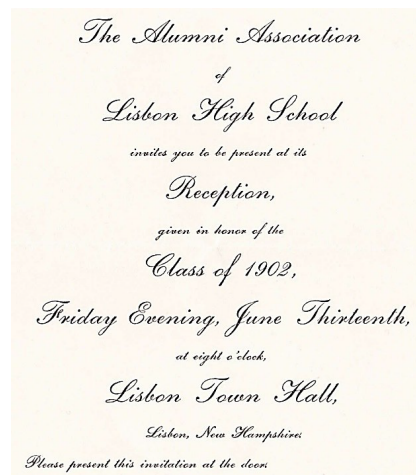 The Alumni Association
of
Lisbon High School
invites you to be present at its
Reception,
given in honor of the
Class of 1902,
Friday Evening, June Thirteenth,
at eight o'clock,
Lisbon Town Hall,
Lisbon, New Hampshire.
Please present this invitation at the door.